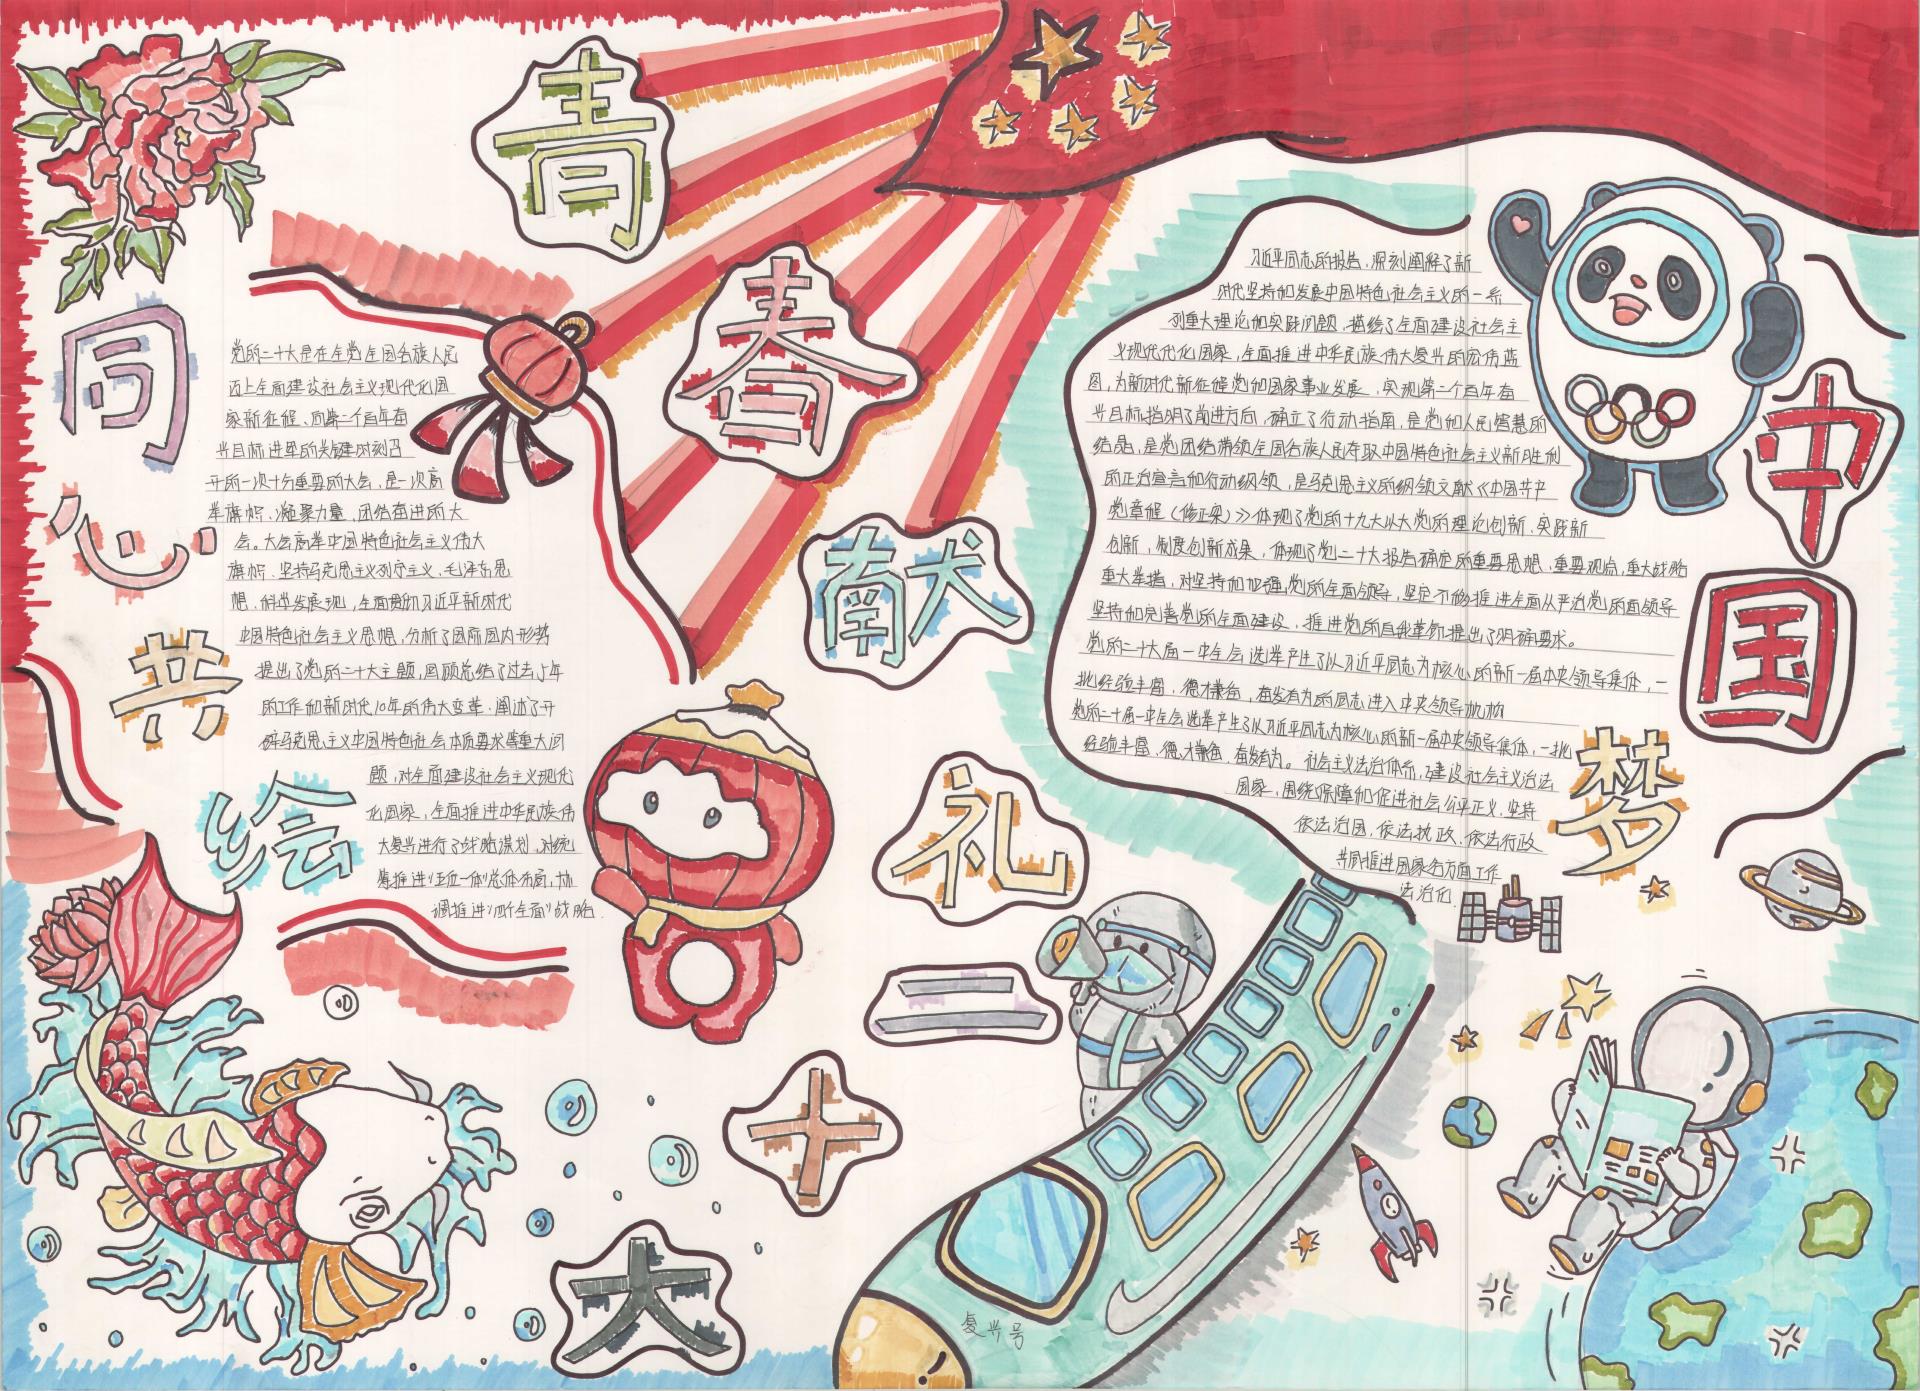 青
春
献
礼
二
十
大
同
心
共
绘
中
国
梦
党的二十大是在全党全国各族人民
迈上全面建设社会主义现代化国
家新征程、向第二个百年奋
斗目标进军的关键时刻召
开的一次十分重要的大会,是一次高
举旗帜、凝聚力量、团结奋进的大
会。大会高举中国特色社会主义伟大
旗帜、坚持马克思主义列宁主义、毛泽东思
想、科学发展观,全面贯彻习近平新时代
中国特色社会主义思想,分析了国际国内形势
提出了党的二十大主题,回顾总结了过去5年
的工作和新时代10年的伟大变革、阐述了开
辟马克思主义中国特色社会本质要求等重大问
题,对全面建设社会主义现代
化国家、全面推进中华民族伟
大复兴进行了战略谋划,对统
筹推进“五位一体”总体布局,协
调推进“四个全面”战略.
习近平同志的报告,深刻阐释了新
时代坚持和发展中国特色社会主义的一系
列重大理论和实践问题,描绘了全面建设社会主
义现代代化国家,全面推进中华民族伟大复兴的宏伟蓝
图,为新时代新征程党和国家事业发展、实现第二个百年奋
斗目标指明了前进方向,确立了行动指南,是党和人民智慧的
结晶,是党团结带领全国各族人民夺取中国特色社会主义新胜利
的正治宣言和行动纲领,是马克思主义的纲领文献《中国共产
党章程(修正案)》体现了党的十九大以大党的理论创新、实践新
创新,制度创新成果,体现了党二十大报告确定的重要思想、重要观点,重大战略
重大举措,对坚持和加强党的全面领导,坚定不移推进全面从严治党的面领导
坚持和完善党的全面建设,推进党的自我革新提出了明确要求。
党的二十大届一中全会选举产生了以习近平同志为核心的新一届中央领导集体,一
批经验丰富、德才兼备,奋发有为的同志进入中央领导机构
党的二十届一中全会选举产生了以习近平同志为核心的新一届中央领导集体,一批
经验丰富、德才兼备、奋发有为。社会主义法治体系,建设社会主义治法
国家,围绕保障和促进社会公平正义,坚持
依法治国、依法执政、依法行政
共同推进国家各方面工作
法治化.
复兴号